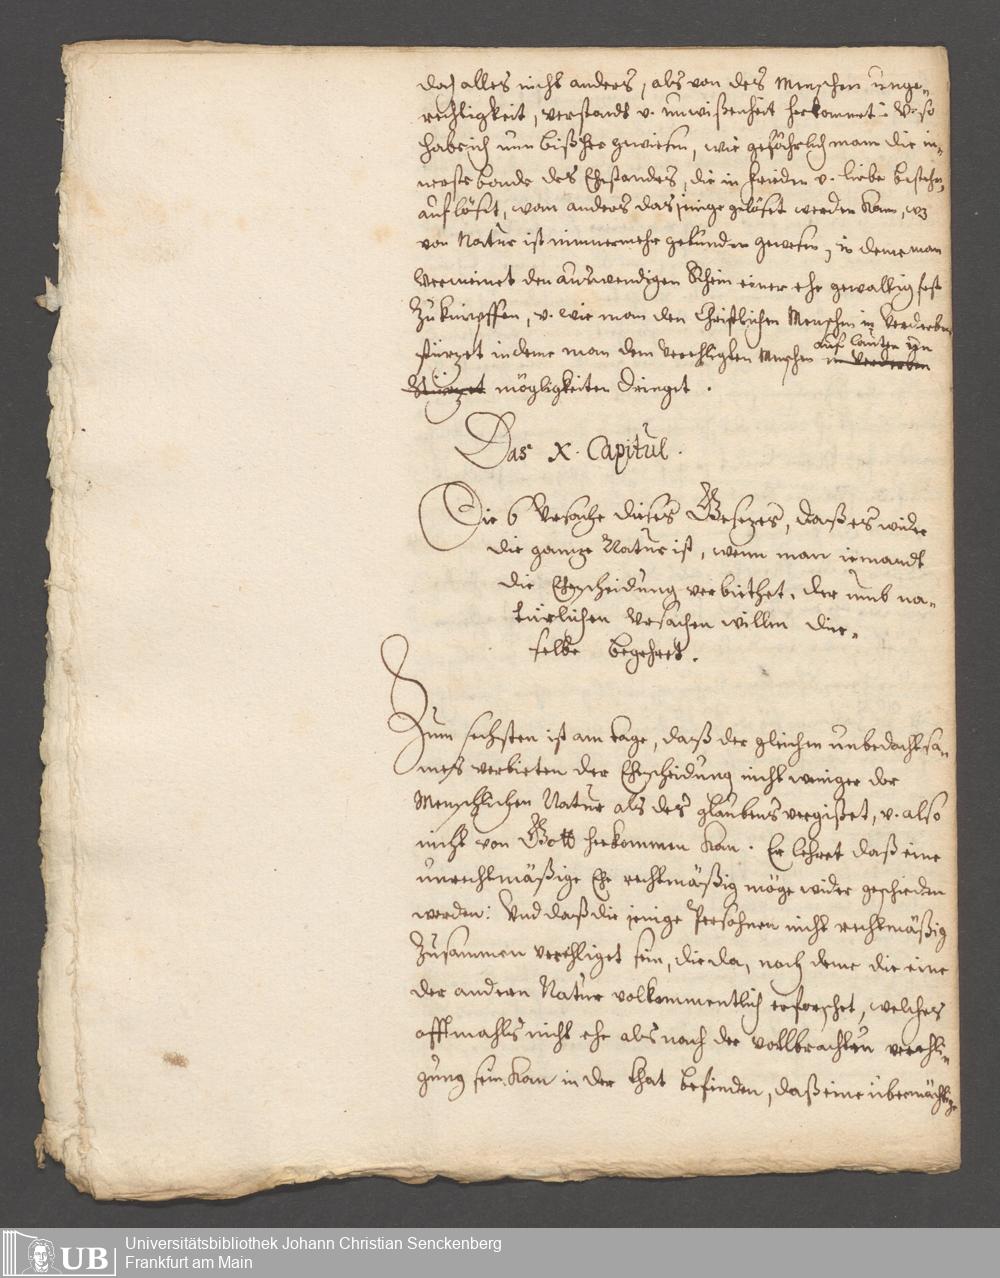 doch alles nicht anders, als von des Menschen unge-
rechtigkeit, verstandt v. unwißenheit herkommet: V. so
hab ich nun bißher zuwiesen, wie gefährlich man die in-
nerste bande des Ehestandes, die in frieden v. liebe bestehen,
auflöset, wan anders dasjenige gelöset werden kan,
von Natur ist nimmermehr gebunden gewesen, in deme man
vermeinet den auswendigen Schein einer ehe gewaltig fest
zu knüpffen, v. wie man den Christlichen Menschen in verderben
stürzet in deme man dem verehligten Menschen in verderben
auf lauter un
stürzet mögligkeiten dringet.
Das X. Capitul.
Die 6 Ursache dieses Gesezes, daß es wider
die ganze Natur ist, wenn man iemandt
die Ehescheidung verbiethet, der umb na-
türlichen Ursachen willen die-
selbe begehret.
Zum sechsten ist am tage, daß der gleichen unbedachtsa-
mes verbieten der Ehescheidung nicht weniger der
Menschlichen Natur als des glaubens vergißet, v. also
nicht von Gott herkommen kan. Er lehret daß eine
unrechtmäßige Ehe rechtmäßig möge wider geschieden
werden: Und daß die jenige Persohnen nicht rechtmäßig
zusammen verehliget sein, die da, nach deme die eine
der andern Natur volkommentlich erforschet, welches
offtmahls nicht ehe als nach der vollbrachten verehli-
gung sein kan in der that befinden, daß eine übermächtige
Universitätsbibliothek Johann Christian Senckenberg
Frankfurt am Main
UB